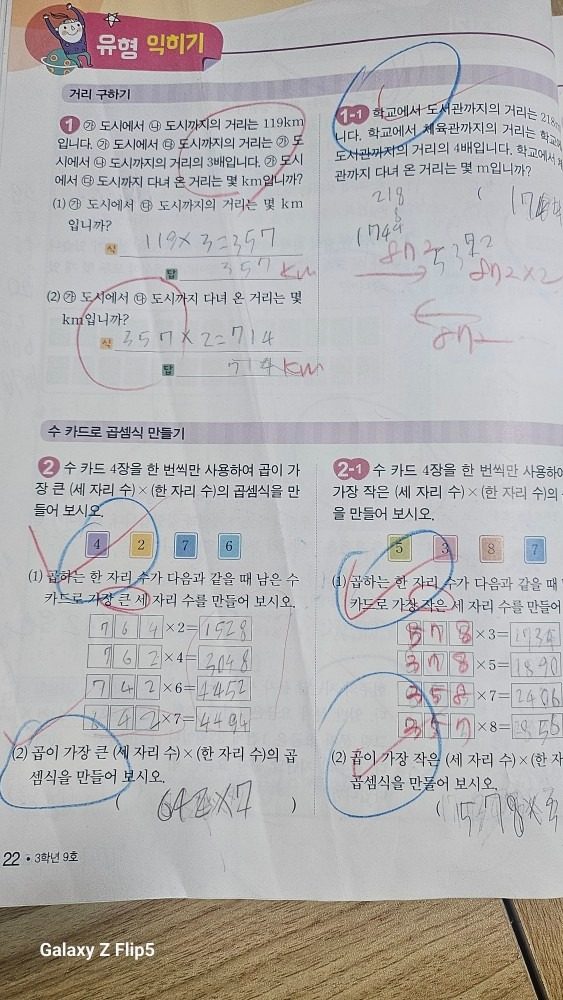 유형 익히기
거리 구하기
1 ㉮ 도시에서 ㉯ 도시까지의 거리는 119km
입니다. ㉮ 도시에서 ㉰ 도시까지의 거리는 ㉮ 도
시에서 ㉯ 도시까지의 거리의 3배입니다. ㉮ 도시
에서 ㉰ 도시까지 다녀 온 거리는 몇 km입니까?
(1) ㉮ 도시에서 ㉰ 도시까지의 거리는 몇 km
입니까?
식 119×3=357
답 357 km
(2) ㉮ 도시에서 ㉰ 도시까지 다녀 온 거리는 몇
km입니까?
식 357×2=714
답 714 km
1-1 학교에서 도서관까지의 거리는 218m
니다. 학교에서 체육관까지의 거리는 학교에
도서관까지의 거리의 4배입니다. 학교에서 체
관까지 다녀 온 거리는 몇 m입니까?
(
218
1744
872
872×2
872
수 카드로 곱셈식 만들기
2 수 카드 4장을 한 번씩만 사용하여 곱이 가
장 큰 (세 자리 수)×(한 자리 수)의 곱셈식을 만
들어 보시오.
4 2 7 6
(1) 곱하는 한 자리 수가 다음과 같을 때 남은 수
카드로 가장 큰 세 자리 수를 만들어 보시오.
7 6 4 ×2=1528
7 6 2 ×4=3048
7 4 2 ×6=4452
6 4 2 ×7=4494
(2) 곱이 가장 큰 (세 자리 수)×(한 자리 수)의 곱
셈식을 만들어 보시오.
( 642×7 )
2-1 수 카드 4장을 한 번씩만 사용하여
가장 작은 (세 자리 수)×(한 자리 수)의
을 만들어 보시오.
5 3 8 7
(1) 곱하는 한 자리 수가 다음과 같을 때
카드로 가장 작은 세 자리 수를 만들어
5 7 8 ×3=1734
3 7 8 ×5=1890
3 5 8 ×7=2406
3 5 7 ×8=
(2) 곱이 가장 작은 (세 자리 수)×(한 자
곱셈식을 만들어 보시오.
( 578×3
22 • 3학년 9호
Galaxy Z Flip5